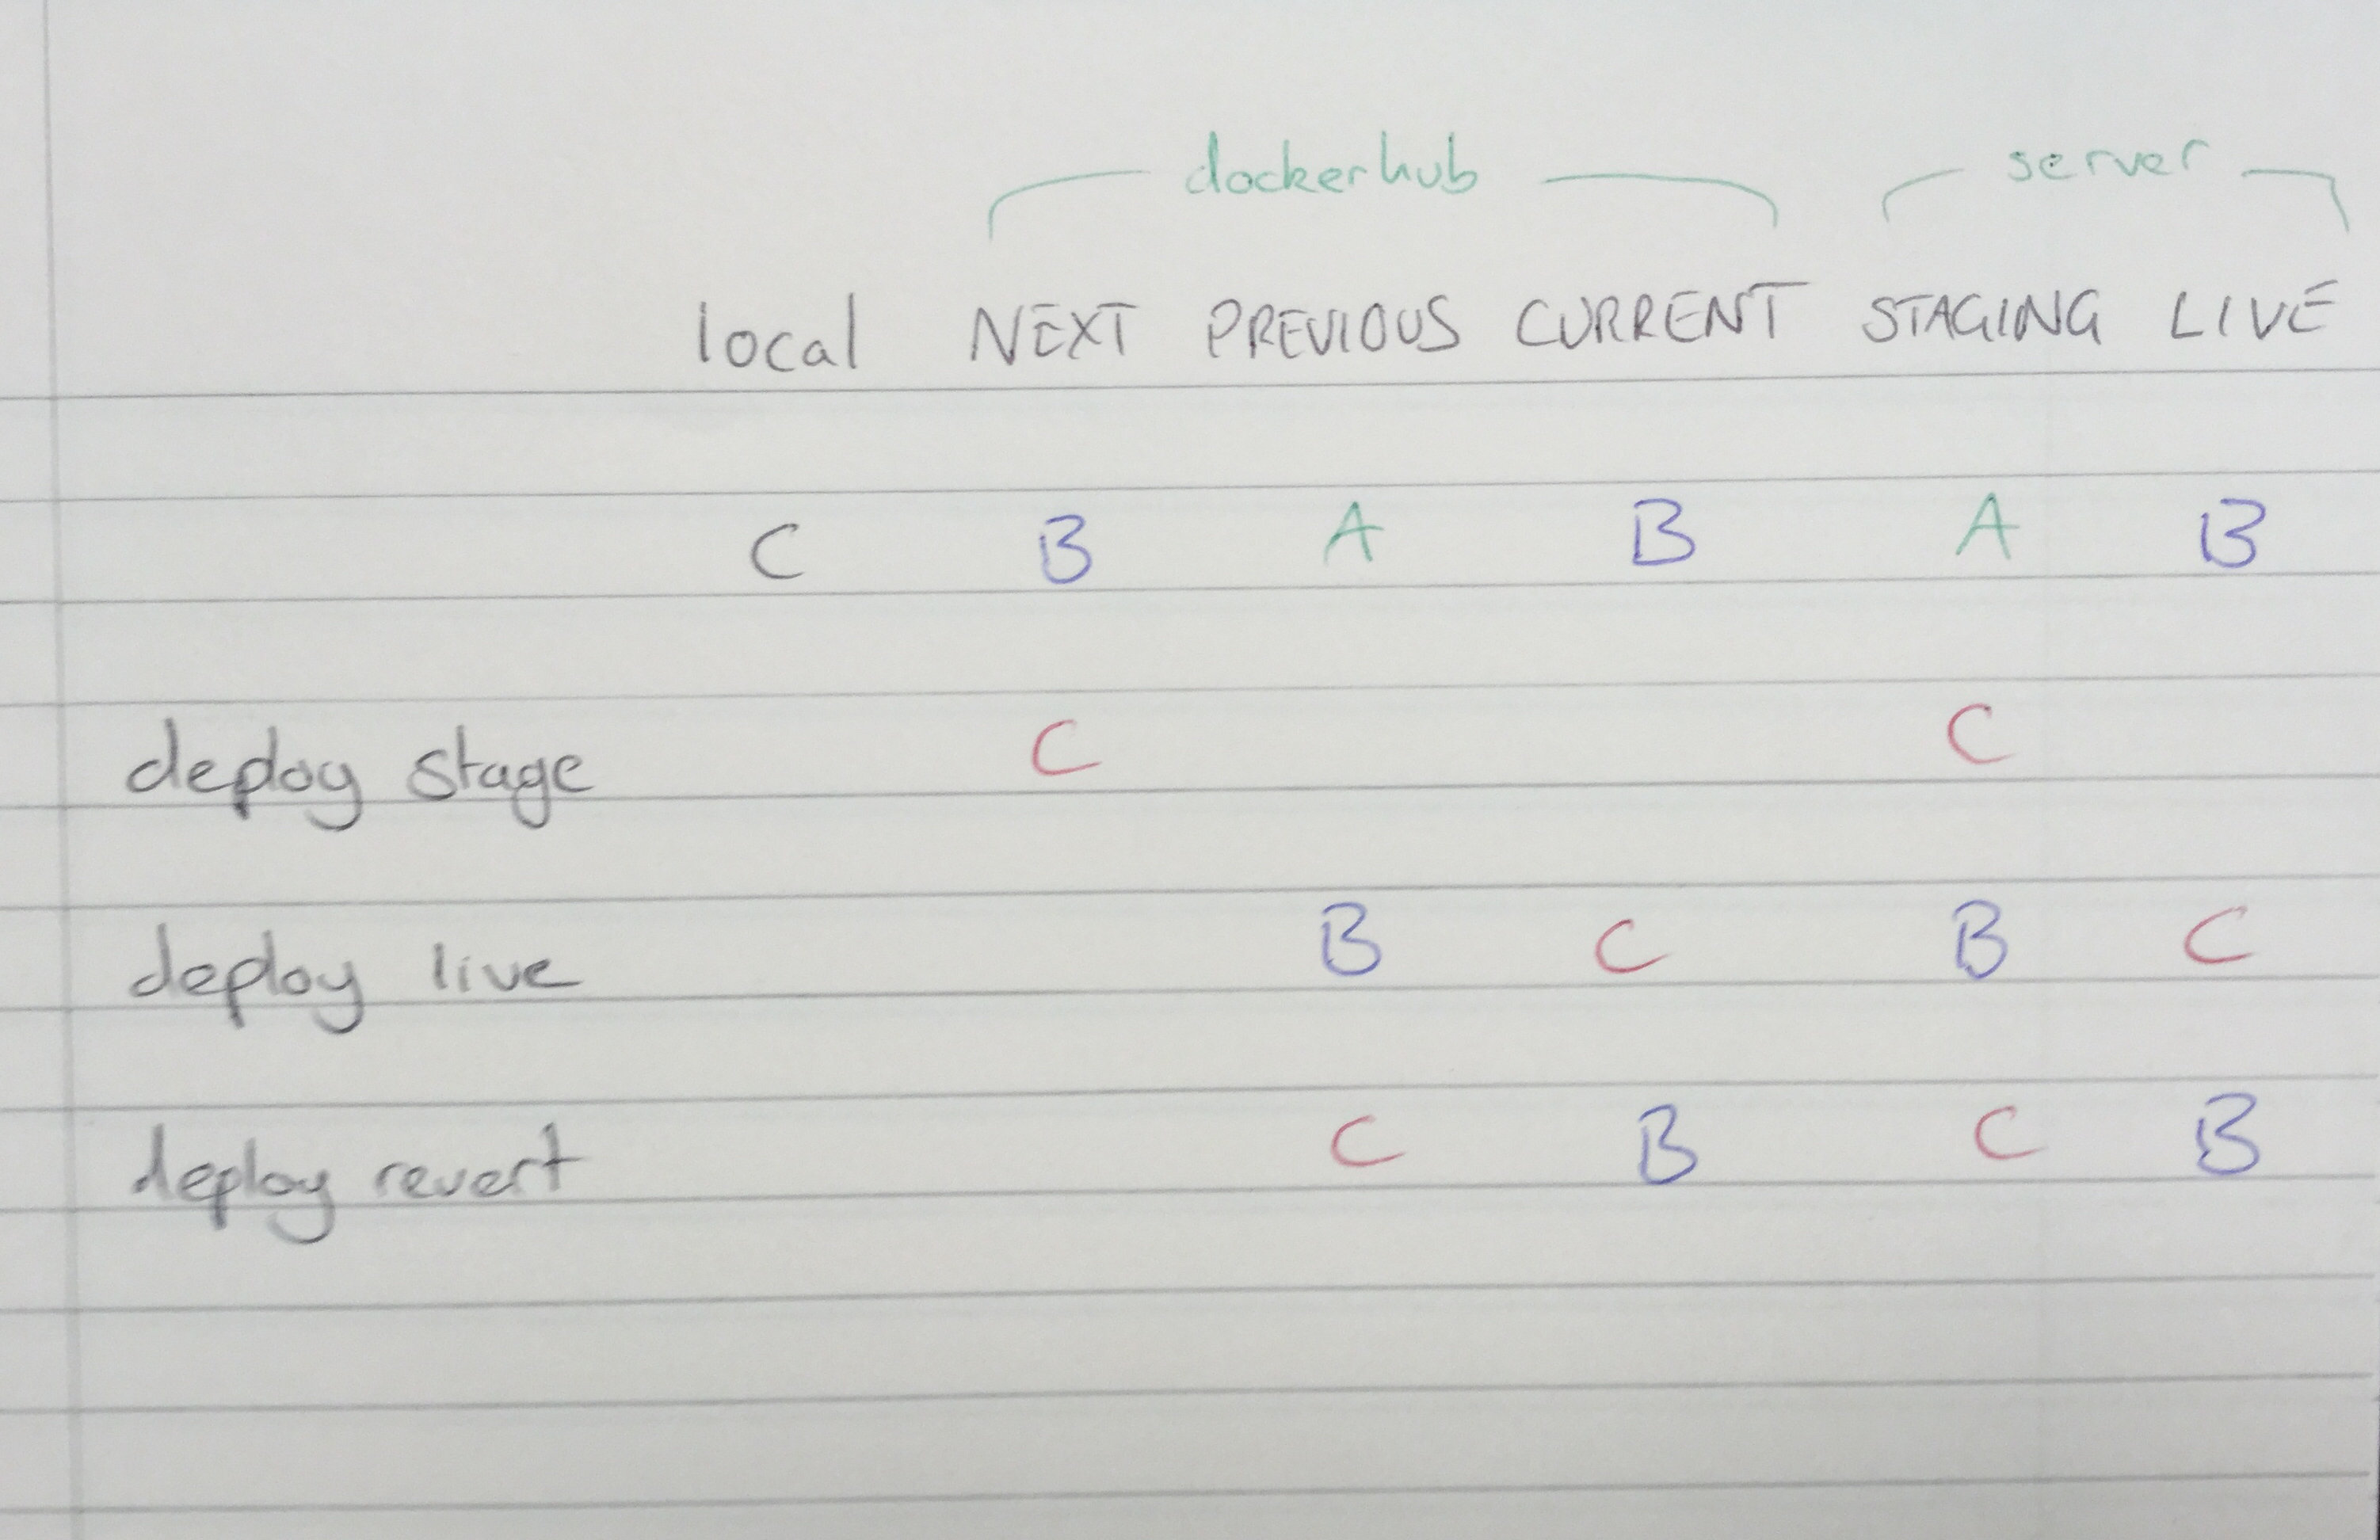 dockerhub server
local NEXT PREVIOUS CURRENT STAGING LIVE
C B A B A B
deploy stage C C
deploy live B C B C
deploy revert C B C B